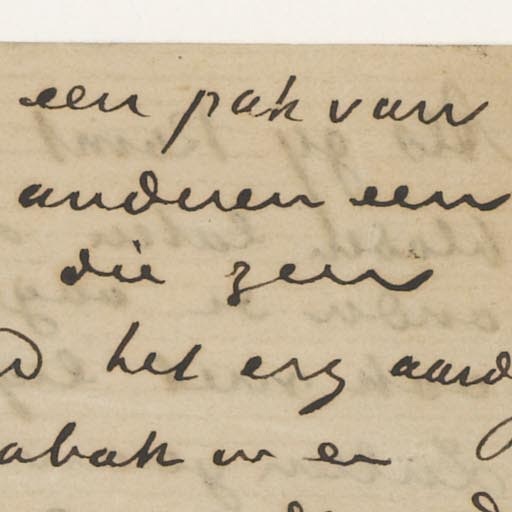 een pak van
anderen een
die zen
het erg aard
abak en en